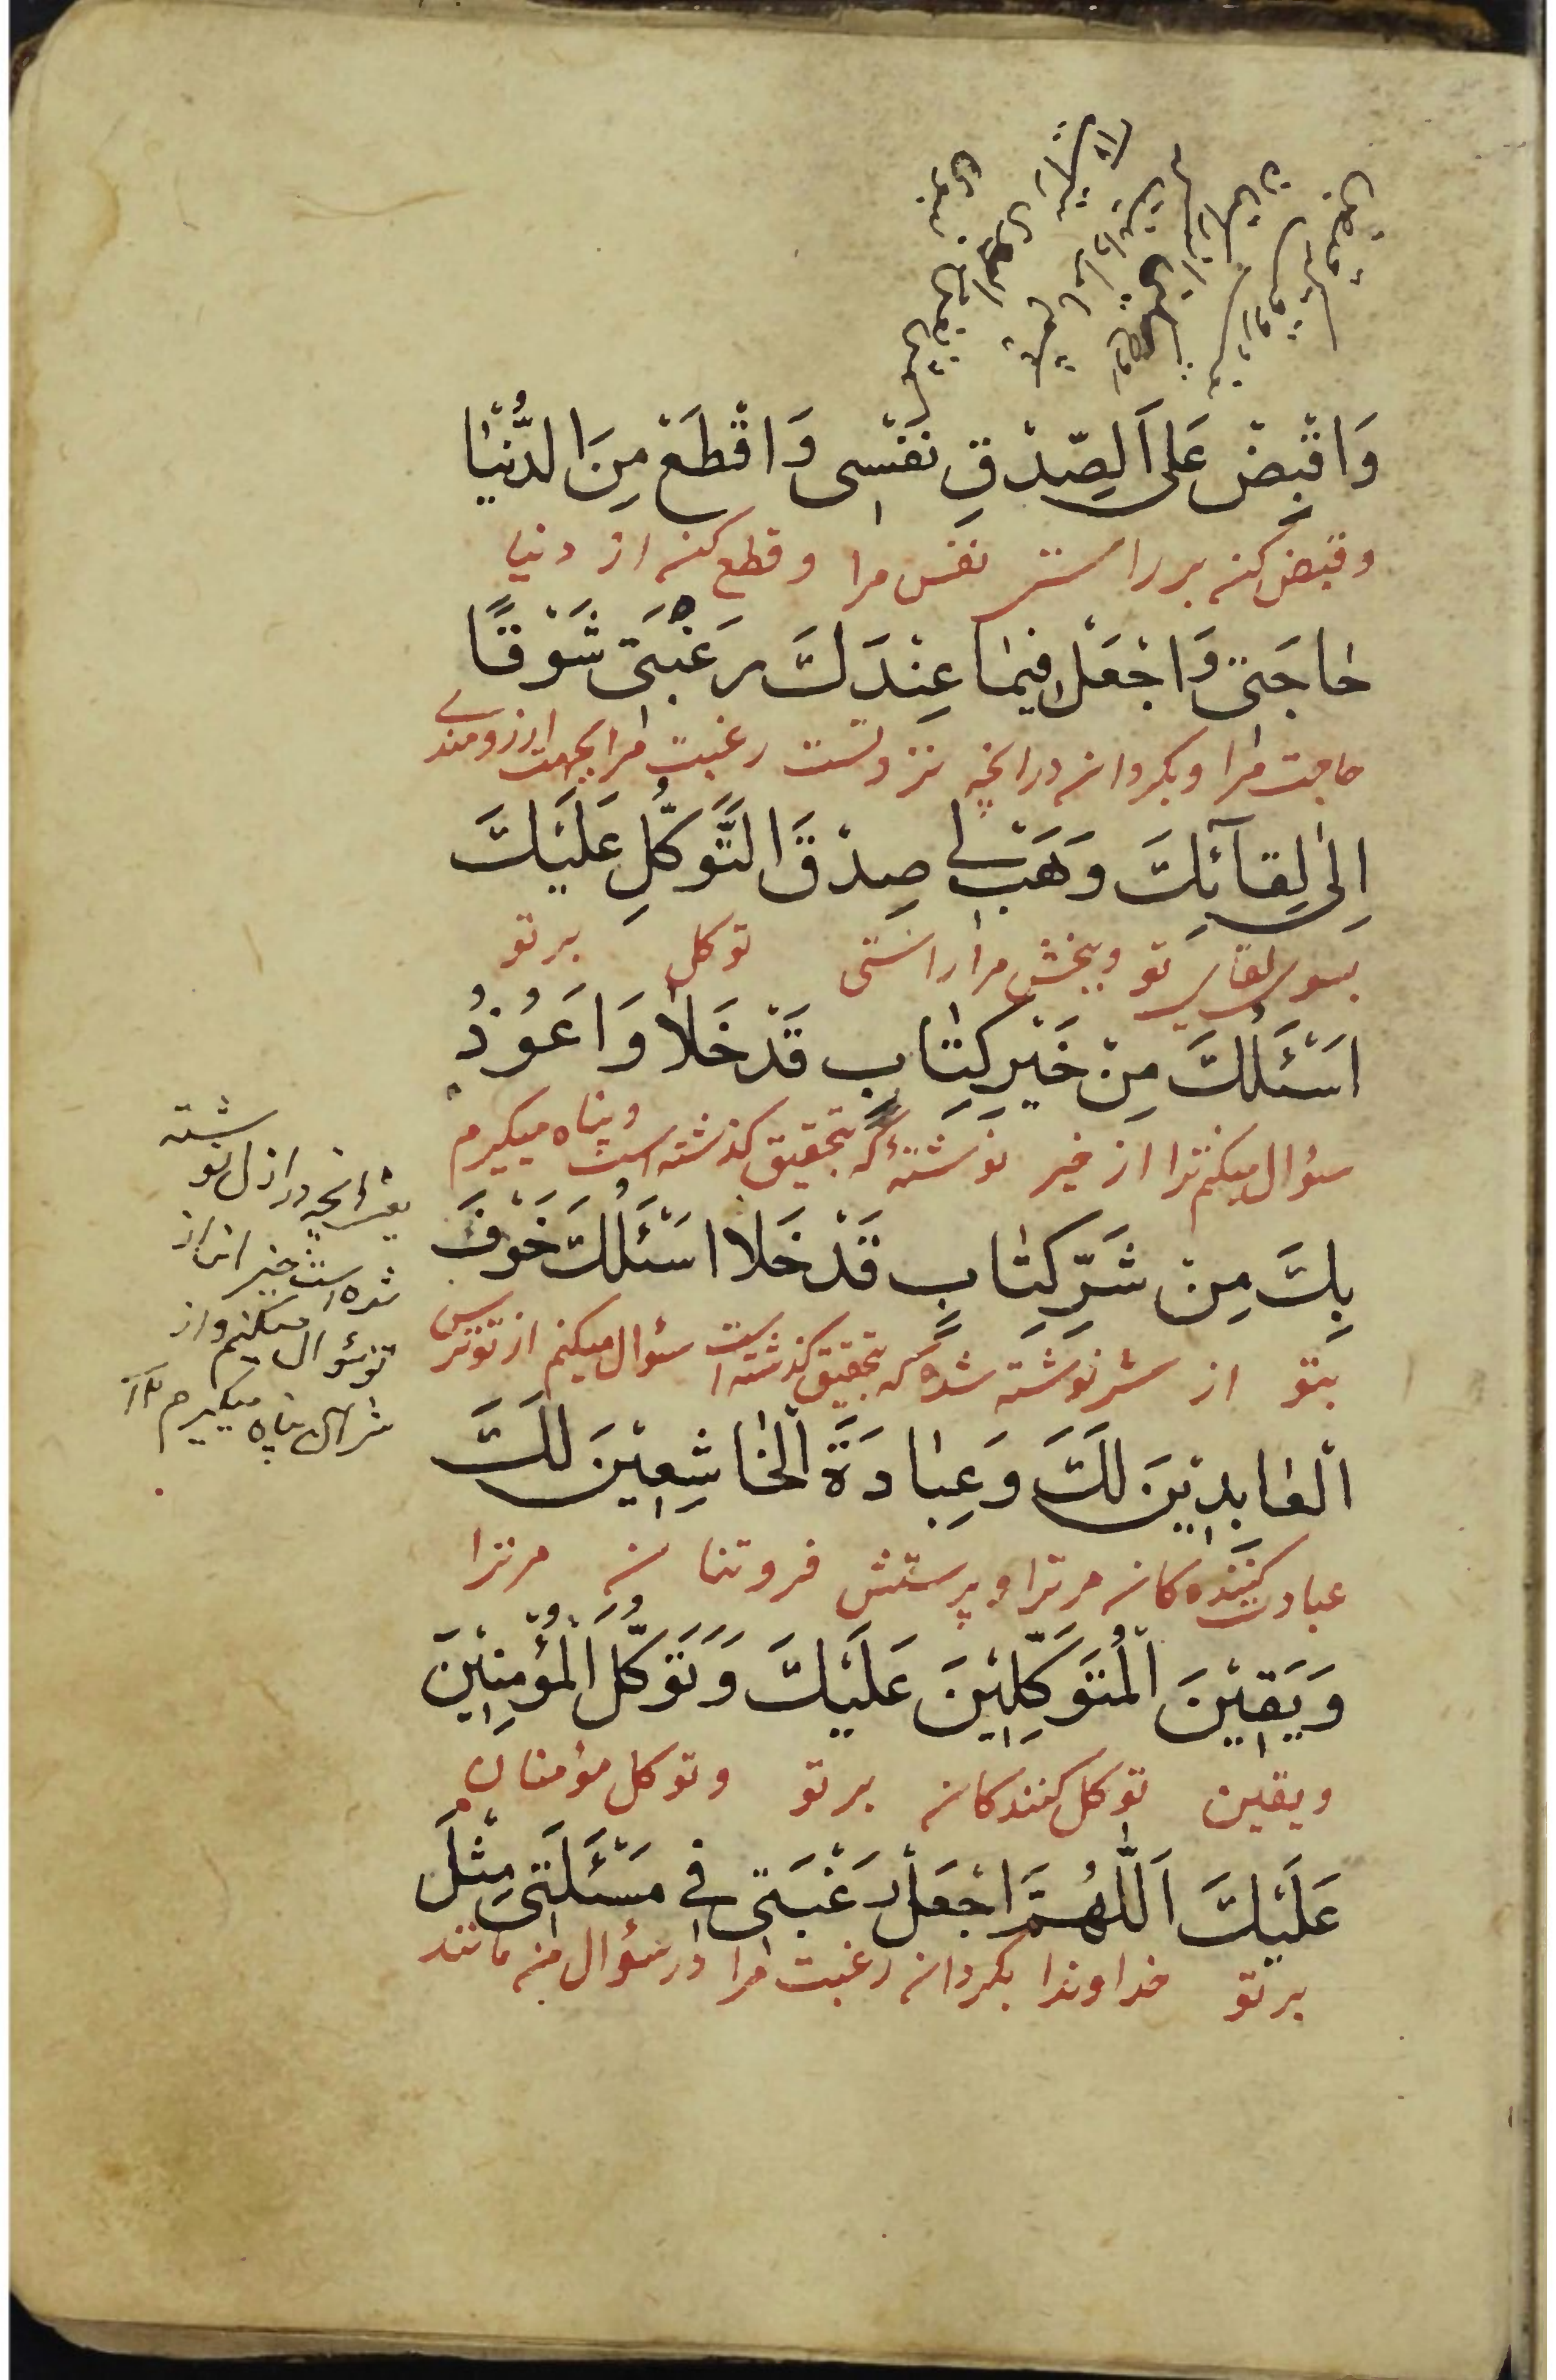 وَاقْبِضْ عَلَى الصِّدْقِ نَفْسِی وَاقْطَعْ مِنَ الدُّنْیٰا
وقبض کن بر راستی نفس مرا و قطع کن از دنیا
حٰاجَتِی وَاجْعَلْ فِیمٰا عِنْدَكَ رَغْبَتِی شَوْقًا
حاجت مرا و بکردان درانچه نزد تست رغبت مرا بجهت ارزومندے
اِلٰی لِقٰآئِكَ وَهَبْ لِی صِدْقَ التَّوَکُّلِ عَلَیْكَ
بسوی لقای تو و ببخش مرا راستی توکل بر تو
اَسْئَلُكَ مِنْ خَیْرِ کِتٰابٍ قَدْ خَلٰا وَاَعُوْذُ
سؤال میکنم ترا از خیر نوشتۀ که بتحقیق کذشته است و پناه میکیرم
بِكَ مِنْ شَرِّ کِتٰابٍ قَدْ خَلٰا اَسْئَلُكَ خَوْفَ
بتو از شر نوشته شده که بتحقیق کذشته است سؤال میکنم از تو ترس
الْعٰابِدِیْنَ لَكَ وَعِبٰادَةَ الْخٰاشِعِیْنَ لَكَ
عبادت کننده کان مر ترا و پرستش فروتنان مر ترا
وَیَقِیْنَ الْمُتَوَکِّلِیْنَ عَلَیْكَ وَتَوَکُّلَ الْمُؤْمِنِیْنَ
و یقین توکل کنندکان بر تو و توکل مؤمنان
عَلَیْكَ اَللّٰهُمَّ اجْعَلْ رَغْبَتِی فِی مَسْئَلَتِی مِثْلَ
بر تو خداوندا بکردان رغبت مرا در سؤال من مانند
یعنی انچه در ازل نوشته
شده است خیر انرا از
تو سؤال میکنم و از
شر ان پناه میکیرم